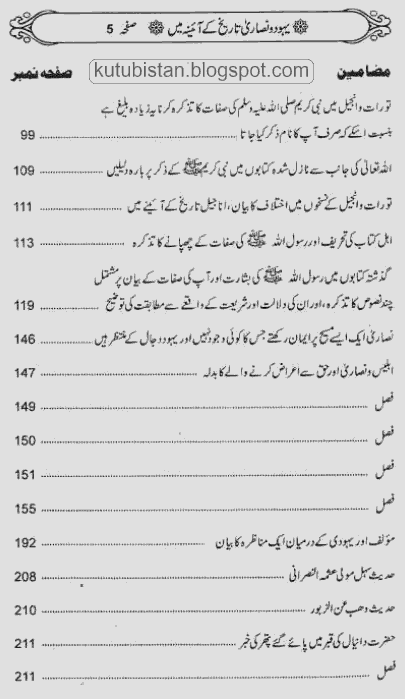 یہود و نصاریٰ تاریخ کے آئینہ میں صفحہ 5
مضامین صفحہ نمبر
kutubistan.blogspot.com
تورات وانجیل میں نبی کریم صلی اللہ علیہ وسلم کی صفات کا تذکرہ کرنا یہ زیادہ بلیغ ہے
بنسبت اسکے کہ صرف آپ کا نام ذکر کیا جاتا 99
اللہ تعالیٰ کی جانب سے نازل شدہ کتابوں میں نبی کریم ﷺ کے ذکر پر بارہ دلیلیں 109
تورات وانجیل کے نسخوں میں اختلاف کا بیان، اناجیل تاریخ کے آئینے میں 111
اہل کتاب کی تحریف اور رسول اللہ ﷺ کی صفات کے چھپانے کا تذکرہ 113
گذشتہ کتابوں میں رسول اللہ ﷺ کی بشارت اور آپ کی صفات کے بیان پر مشتمل
چند نصوص کا تذکرہ، اور ان کی دلالت اور شریعت کے واقعے سے مطابقت کی توضیح 119
نصاریٰ ایک ایسے مسیح پر ایمان رکھتے جس کا کوئی وجود نہیں اور یہود دجال کے منتظر ہیں 146
ابلیس و نصاریٰ اور حق سے اعراض کرنے والے کا بدلہ 147
فصل 149
فصل 150
فصل 151
فصل 155
مؤلف اور یہودی کے درمیان ایک مناظرہ کا بیان 192
حدیث سہل مولی عثمہ النصرانی 208
حدیث وھب عن الزبور 210
حضرت دانیال کی قبر میں پائے گئے پتھر کی خبر 211
فصل 211